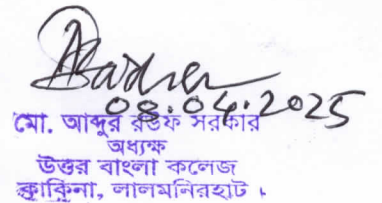 08.04.2025
মো. আব্দুর রউফ সরকার
অধ্যক্ষ
উত্তর বাংলা কলেজ
কাকিনা, লালমনিরহাট।